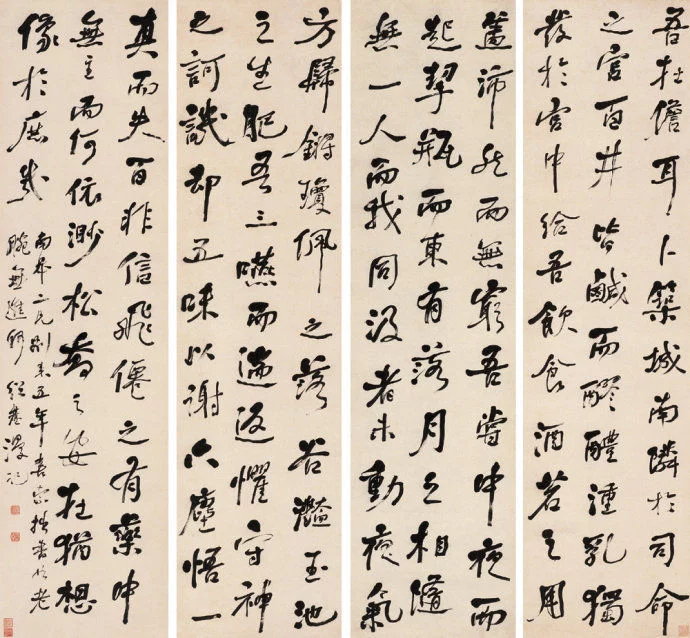 吾在儋耳卜築城南隣於司命
之宮百井皆鹹而醪醴湩乳獨
發於宮中給吾飲食酒茗之用
盖沛然而無窮吾嘗中夜而
起挈瓶而東有落月之相隨
無一人而我同汲者未動夜氣
方歸鏘瓊佩之落谷灧玉池
之生肥吾三嚥而遄返懼守神
之訶譏却五味以謝六塵悟一
真而失百非信飛僊之有藥中
無主而何依渺松喬之安在猶想
像於庶幾
二兄別來五年拙書老
腕無進紹基漫記